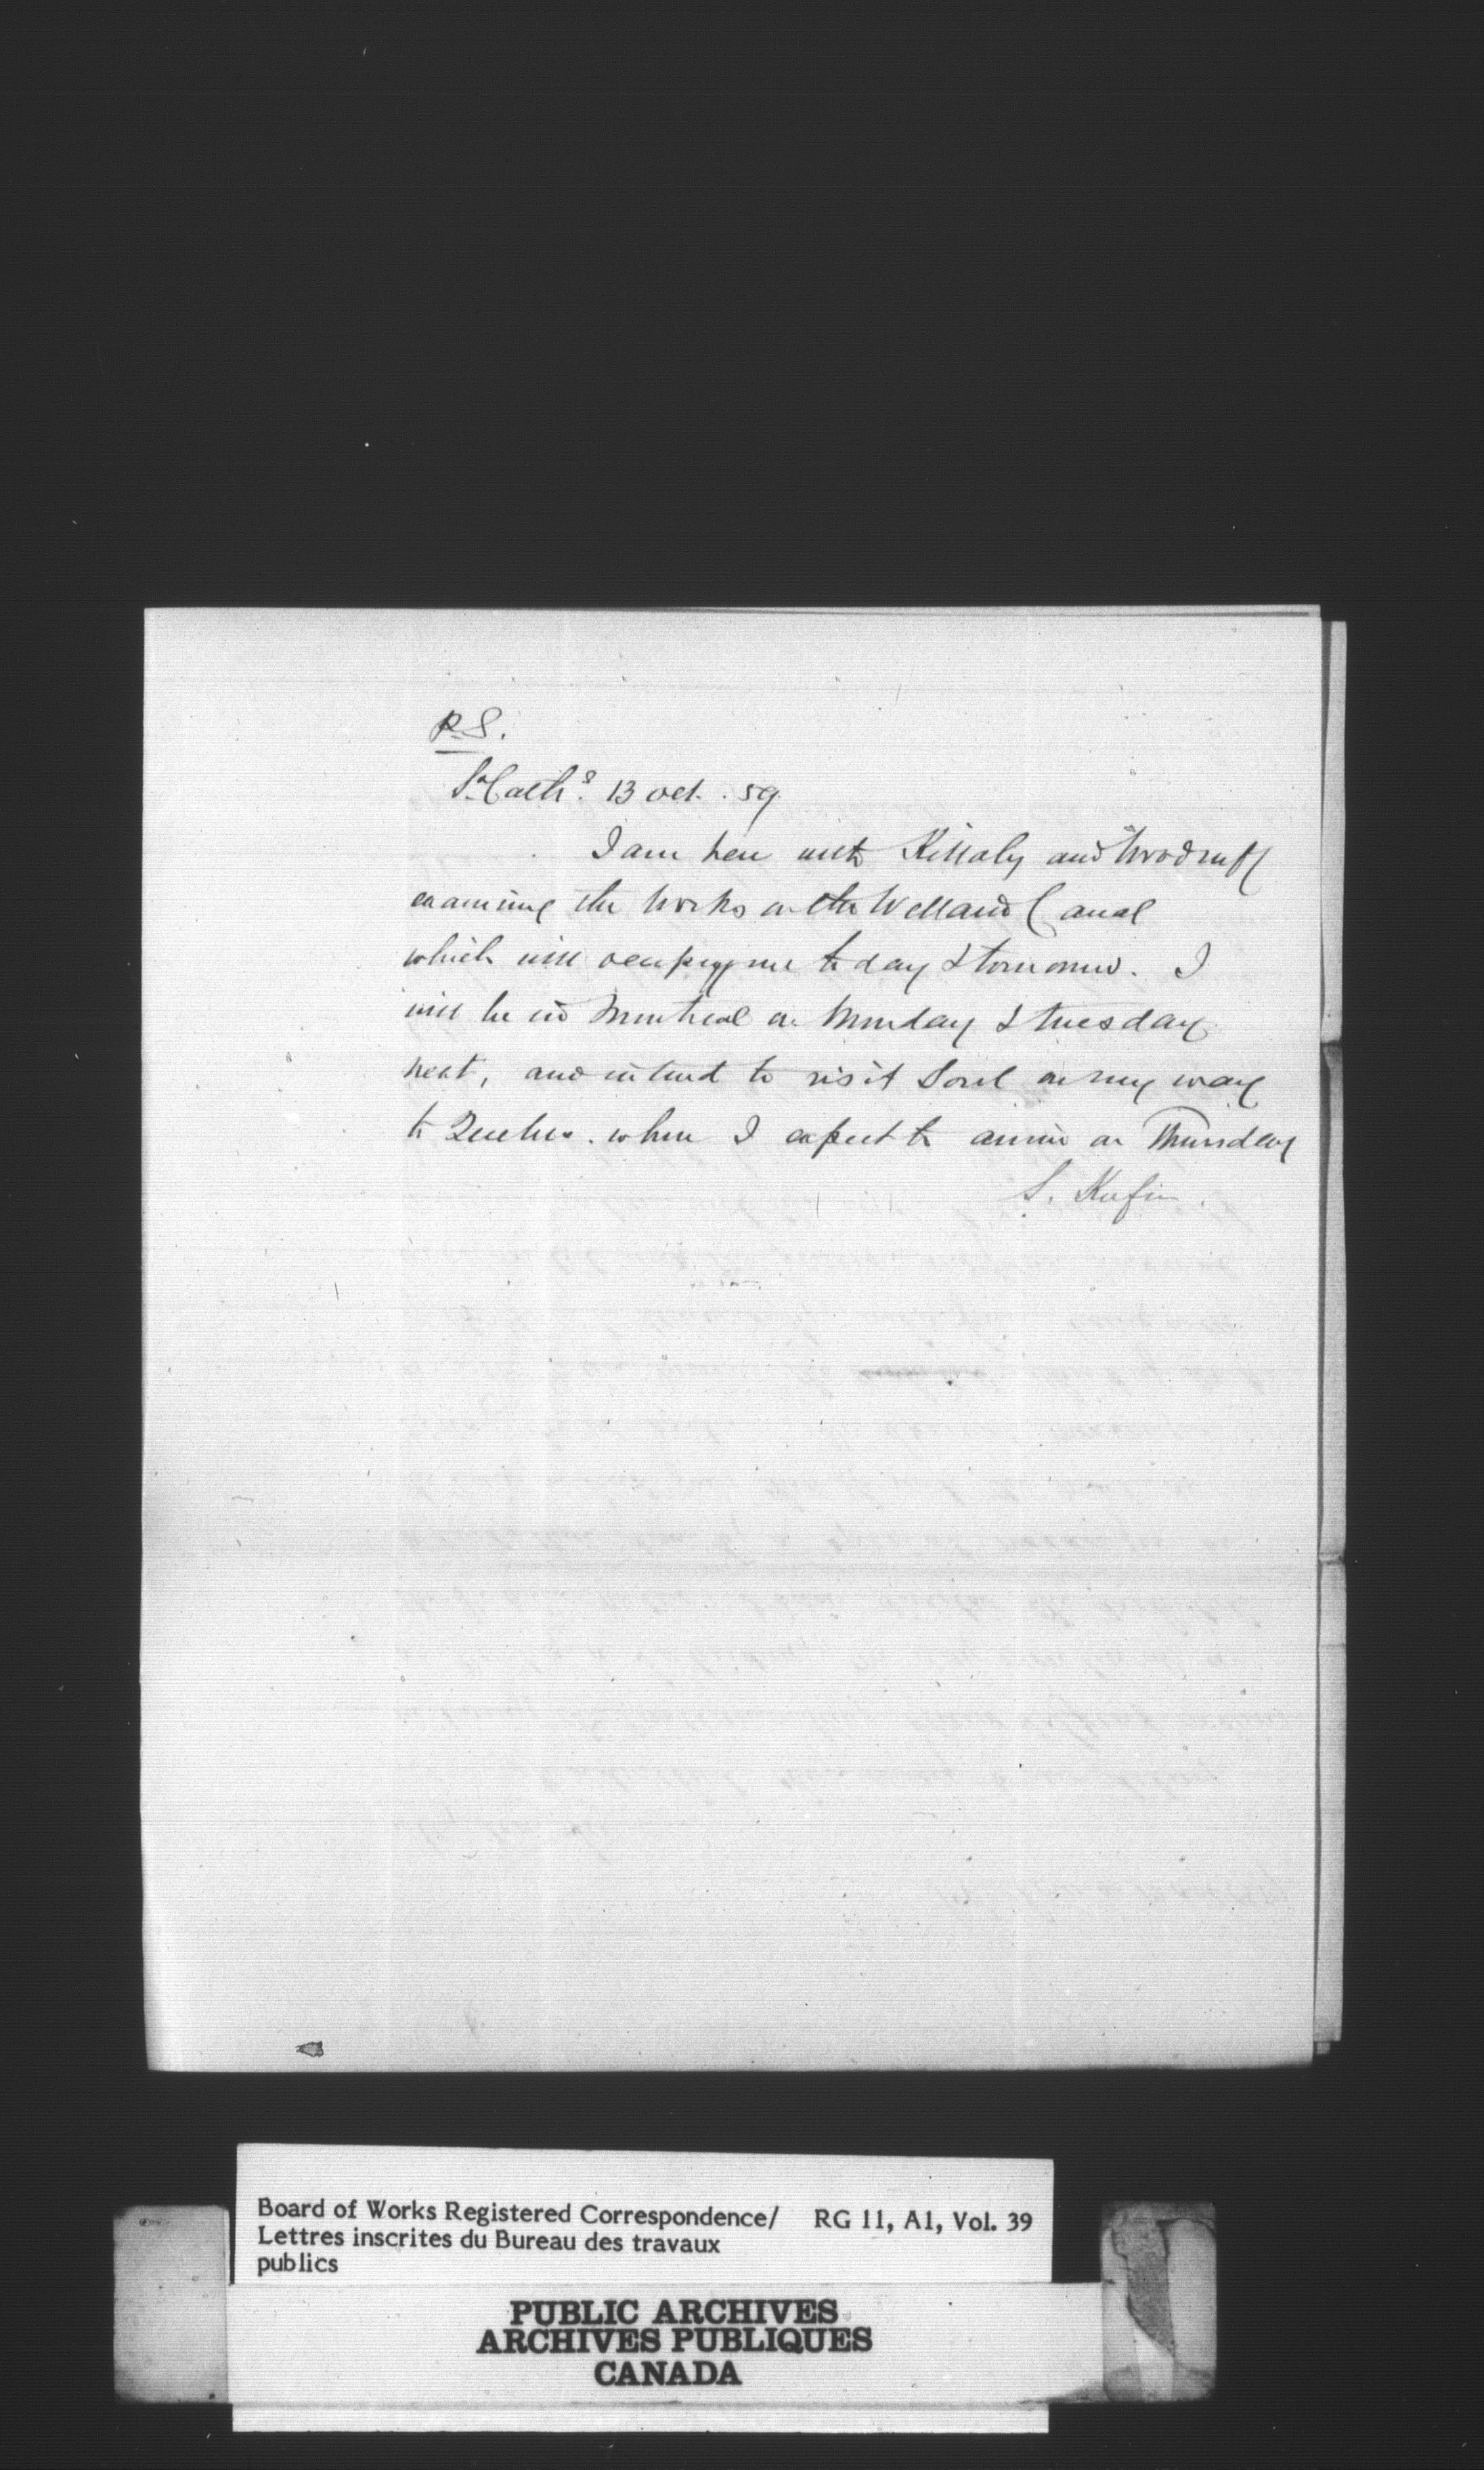 P.S.
St Caths. 13 Oct. 59.
I am here with Killaly and Woodruff
examining the works on the Welland Canal
which will occupy me to day & tomorrow. I
will be in Montreal on Monday & Tuesday
next, and intend to visit Sorel on my way
to Quebec. where I expect to arrive on Thursday
S. Keefer.
Board of Works Registered Correspondence/ RG 11, A1, Vol. 39
Lettres inscrites du Bureau des travaux
publics
PUBLIC ARCHIVES
ARCHIVES PUBLIQUES
CANADA